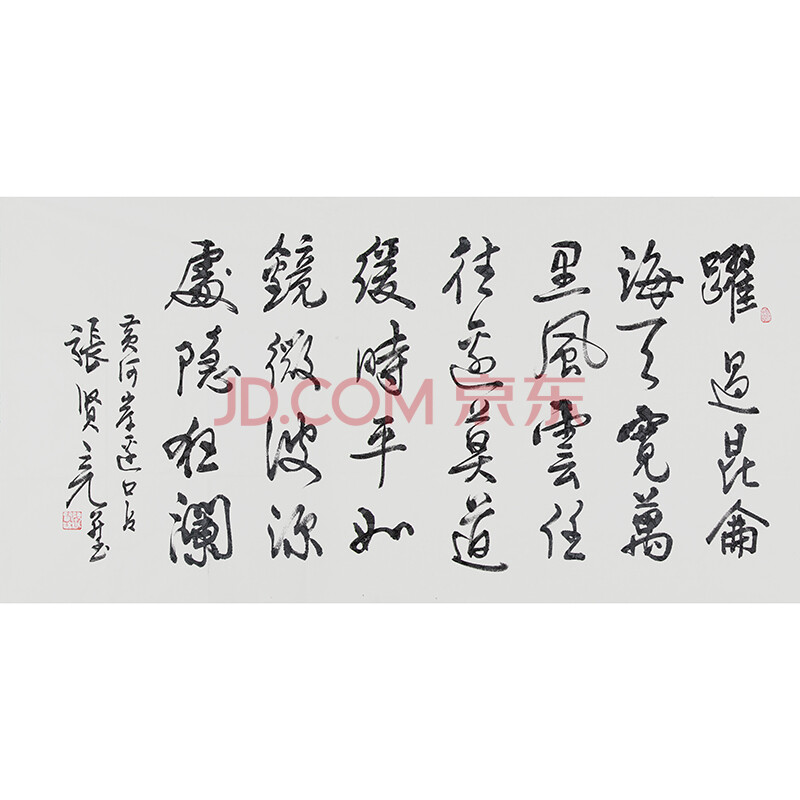 躍過昆侖
海天寬萬
里風雲任
往還莫道
緩時平如
鏡微波深
處隱狂瀾
黃河岸邊口占
張賢亮
JD.COM 京东